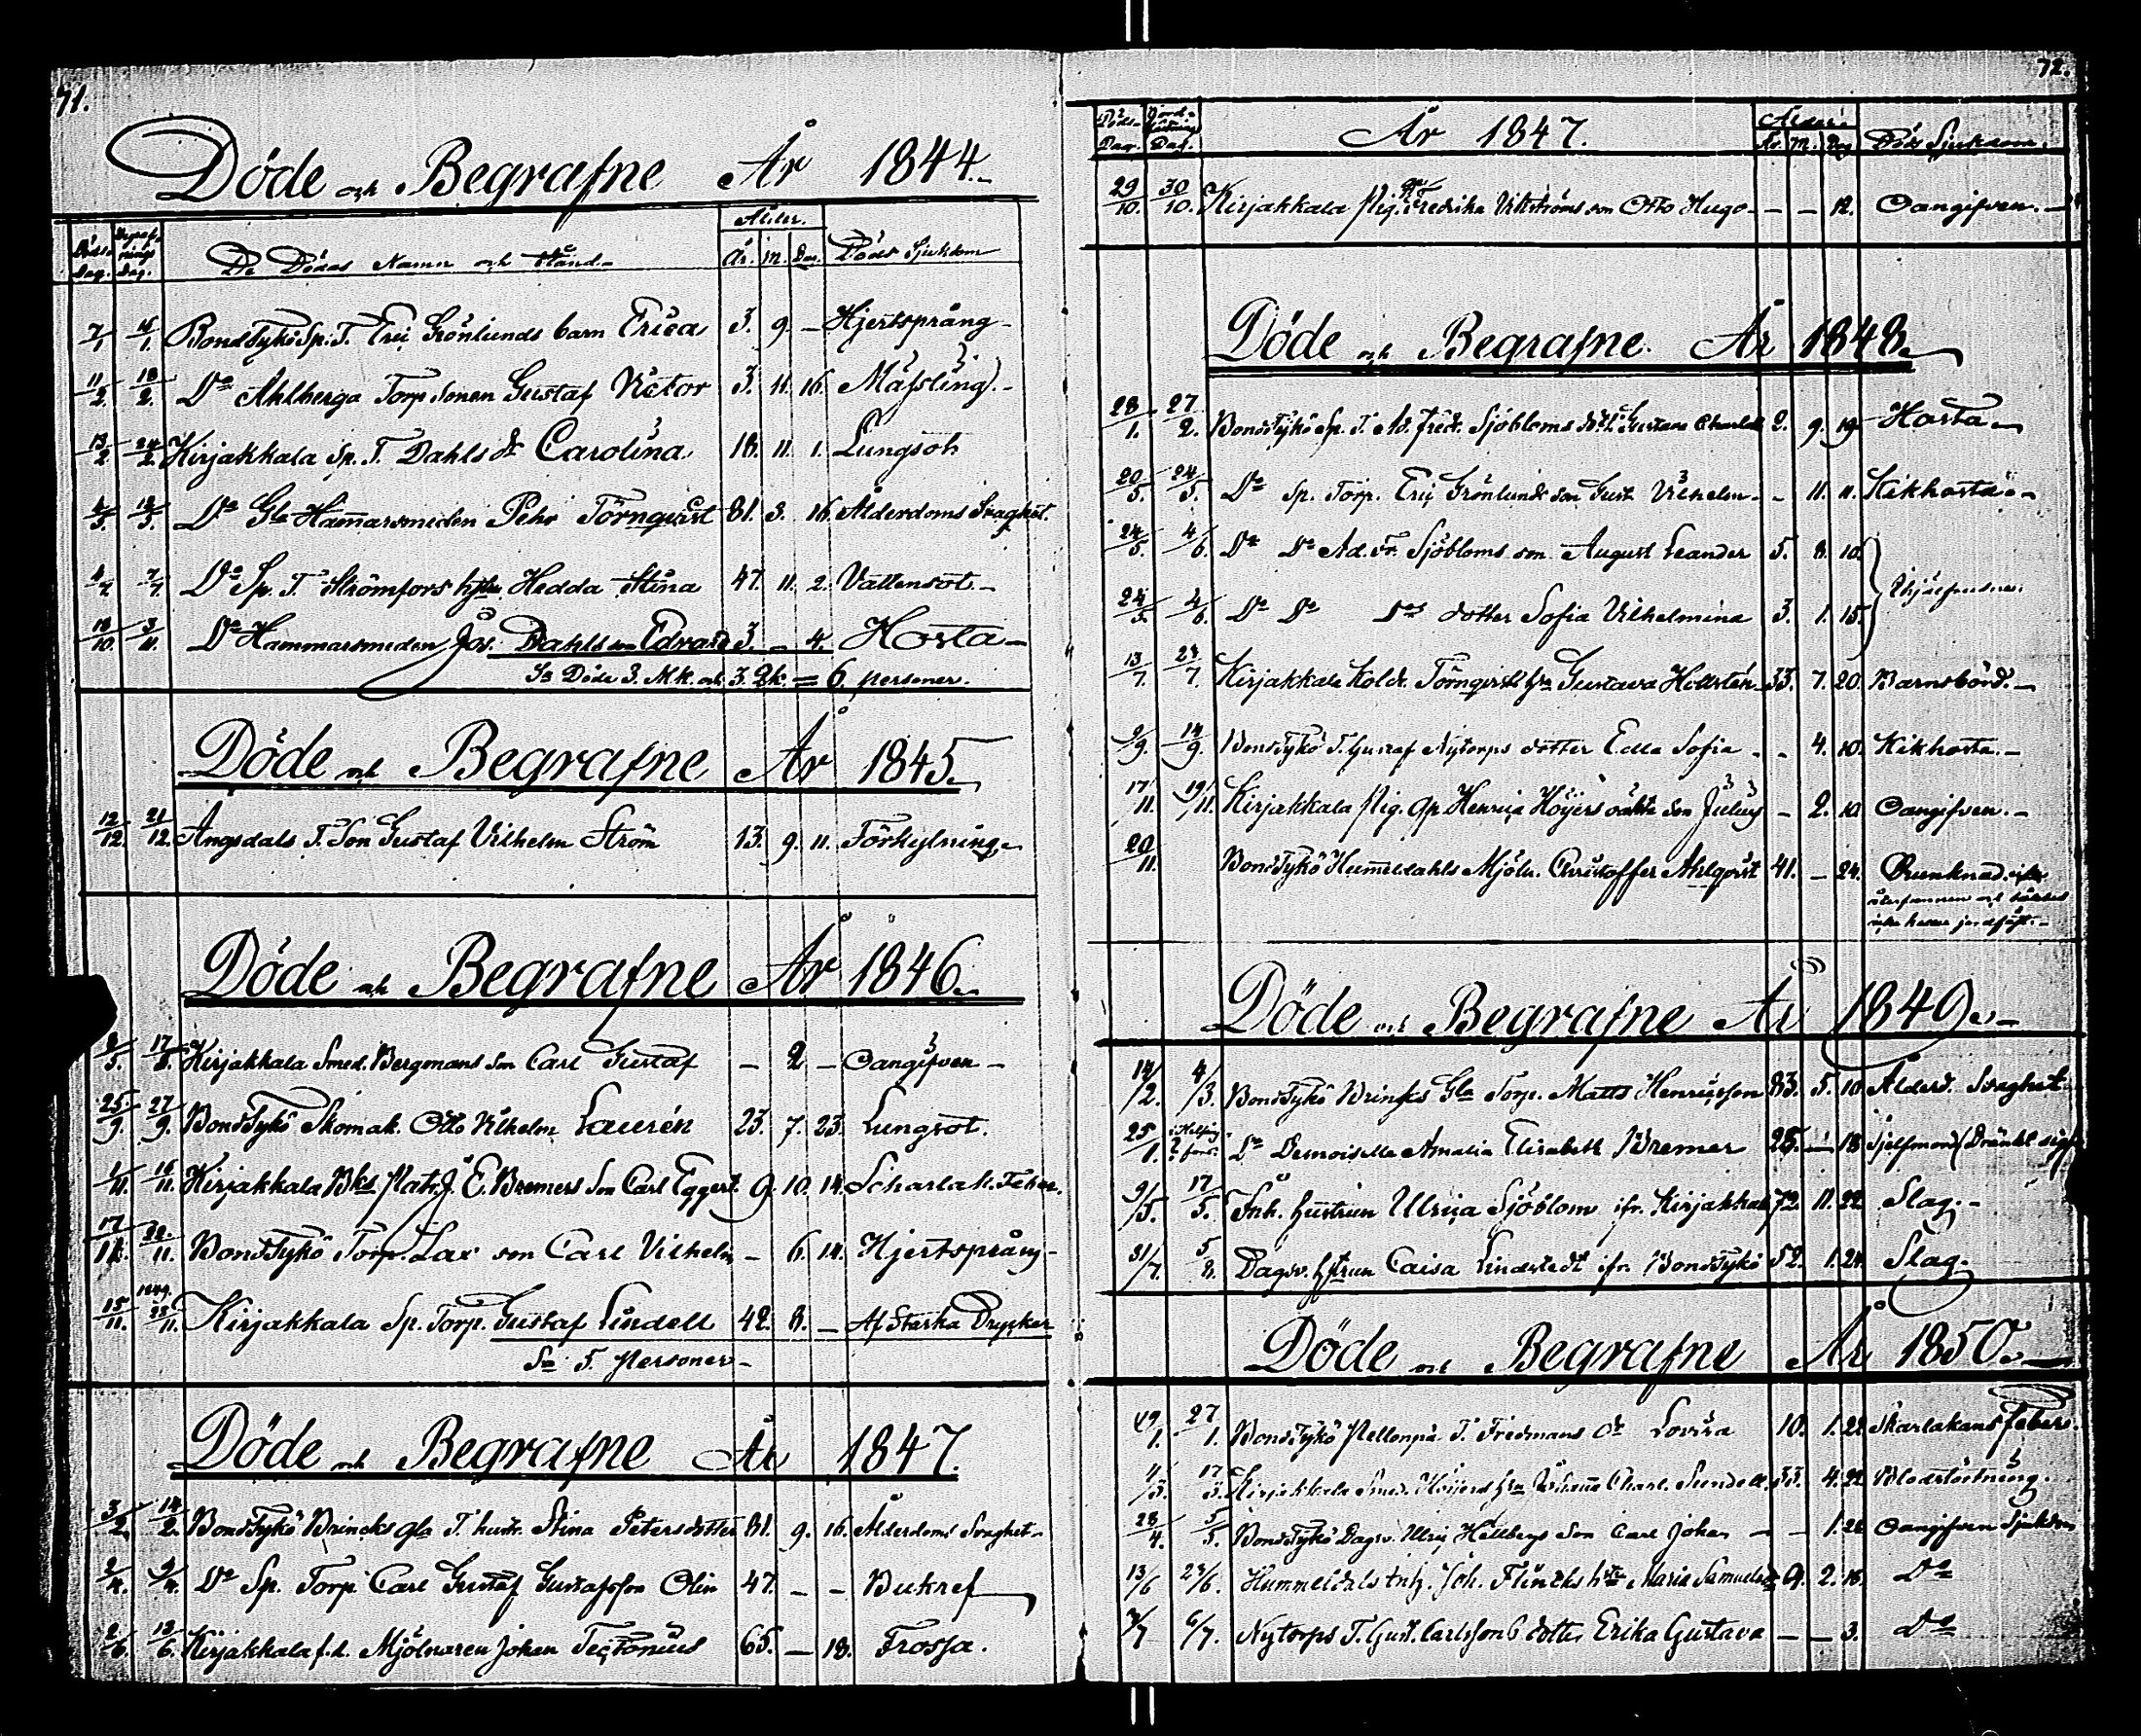 71.
Döde och Begrafne År 1844.
Döds Dag. Begrafnings Dag. De Dödas Namn och Stånd. Ålder. År. M. Dag. Döds Sjukdom
7/1 14/1 BondTykö Sp. T. Eric Grönlunds barn Erica 3. 9. – Hjertsprång
11/2 18/2 Do Ahlberga Torp Sonen Gustaf Victor 3. 11. 16. Mässling
13/2 24/2 Kirjakkala Sp. T. Dahls dr Carolina 18. 11. 1. Lungsot
12/3 Do Gla Hammarsmeden Pehr Törnqvist 81. 3. 16. Ålderdoms Svaghet.
4/7 7/7 Do Sp. T. Strömfors hstru Hedda Stina 47. 11. 2. Vattensot.
18/10 3/11 Do Hammarsmeden Joh. Dahls son Edvard 3. – 4. Hosta
Sa Döde 3. Mk. och 3. Qk. = 6. personer.
Döde och Begrafne År 1845.
12/12 21/12 Angsdals T. Son Gustaf Vilhelm Ström 13. 9. 11. Förkylning
Döde och Begrafne År 1846.
2/5 17/5 Kirjakkala Smed. Bergmans Son Carl Gustaf – 2 – Oangifven
25/9 27/9 BondTykö Skomak. Otto Vilhelm Laurén 23. 7. 23. Lungsot.
1/11 16/11 Kirjakkala Bks Patr. J. E. Bremers Son Carl Eggert 9. 10. 14. Scharlak. Feber.
17/11 22/11 BondTykö Torp. Lax son Carl Vilhelm – 6. 14. Hjertsprång
15/11 1849. 23/11 Kirjakkala Sp. Torp. Gustaf Lindell 42. 8. – Af Starka Drycker
Sa 5. Personer
Döde och Begrafne År 1847.
3/2 14/2 BondTykö Brincks gla T. hustr. Stina Petersdotter 81. 9. 16. Ålderdoms Svaghet
2/4 4/4 Do Sp. Torp. Carl Gustaf Gustafsson Olin 47. – – Bukref
2/6 13/6 Kirjakkala f.d. Mjölnaren Johan Tectonius 65. – 18. Frossa.
72.
Döds Dag. Jordfästnings Dag. År 1847. Ålder. År. M. Dag Döds Sjukdom.
29/10. 30/10. Kirjakkala Pig. Fredrika Vikströms son Otto Hugo – – 12. Oangifven.
Döde och Begrafne År 1848.
28/1. 27/2. BondTykö Sp. T. Ad. Fredr. Sjöbloms dr Gustava Charlott 2. 9. 19. Hosta
20/5. 24/5. Do Sp. Torp. Eric Grönlunds son Gust. Vilhelm – 11. 11. Kikhosta
24/5. 4/6. Do Do Ad. Fr. Sjöbloms son August Leander 5. 8. 10.
24/5. 4/6. Do Do Dos dotter Sofia Vilhelmina 3. 1. 15. Ihjälfrusna.
13/7. 23/7. Kirjakkala Kold. Törnqvists hru Gustava Hellstén 33. 7. 20. Barnsbörd.
9/9. 14/9. BondTykö T. Gustaf Nytorps dotter Edla Sofia – 4. 10. Kikhosta.
17/11. 19/11. Kirjakkala Pig. Henrica Höijers oäkta Son Julius – 2. 10 Oangifven.
20/11. BondTykö Hummeldahls Mjöln. Christoffer Ahlqvist 41. – 24. Drunknad. icke
återfunnen och således
icke heller jordfäst.
Döde och Begrafne År 1849.
14/2. 4/3. BondTykö Brincks Gla Torp. Matts Henricsson 83. 5. 10 Ålderd. Svaghet
25/1. i Helsingfors. Do Demoiselle Amalia Elisabeth Bremer 18 Sjelfmord (Dränkt sig)
9/5. 17/5. Inh. hustrun Ulrica Sjöblom ifr. Kirjakkala 72. 11. 22. Slag.
31/7. 5/8. Dagsv. hstrun Caisa Lindstedt ifr. BondTykö 52. 1. 24. Slag.
Döde och Begrafne År 1850.
19/1. 27/1. BondTykö T. Fredmans dr Lovisa 10. 1. 22. Skarlakans Feber.
4/3. 17/3. Kirjakkala Smed. Höijers hru Johanna Charl. Sundell. 33. 4. 22 Blodstörtning.
28/4. 5/5. BondTykö Dagsv. Ulric Hellbergs Son Carl Johan – 1. 28 Oangifven Sjukdom
13/6 23/6. Hummeldals Inh. Joh. Flincks hru Maria Samuelsdr 2. 18. Do
3/7 6/7. Nytorps T. Gust. Carlssons dotter Erika Gustava – – 3. Do